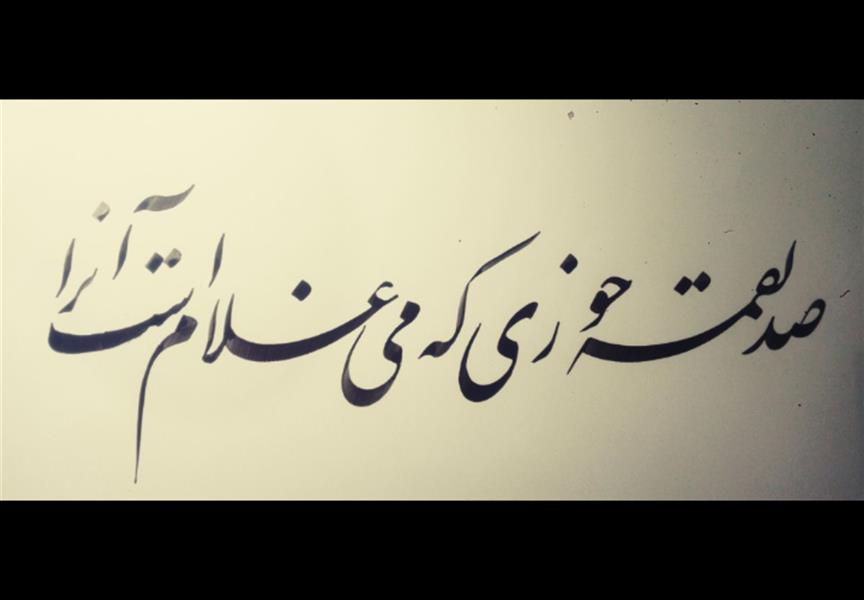 صد لقمه خوری که می غلام است آنرا